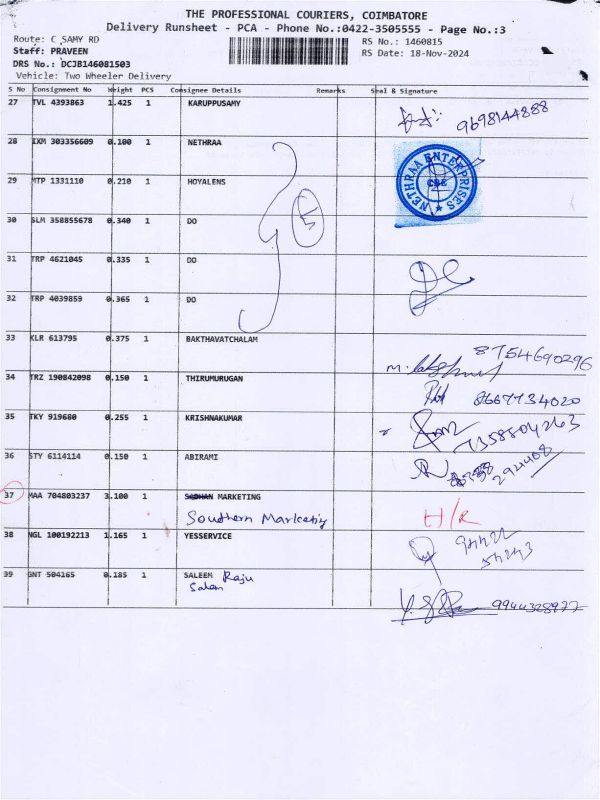 THE PROFESSIONAL COURIERS, COIMBATORE
Delivery Runsheet - PCA - Phone No.:0422-3505555 - Page No.:3
Route: C SAMY RD RS No.: 1460815
Staff: PRAVEEN RS Date: 18-Nov-2024
DRS No.: DCJB146081503
Vehicle: Two Wheeler Delivery
S No Consignment No Weight PCS Consignee Details Remarks Seal & Signature
27 TVL 4393863 1.425 1 KARUPPUSAMY
9698144888
28 IXM 303356609 0.100 1 NETHRAA
NETHRAA ENTERPRISES
CBE
29 MTP 1331110 0.210 1 HOYALENS
30 SLM 358855678 0.340 1 DO
31 TRP 4621045 0.335 1 DO
32 TRP 4039859 0.365 1 DO
33 KLR 613795 0.375 1 BAKTHAVATCHALAM
8754690296
34 TRZ 190842098 0.150 1 THIRUMURUGAN
8667734020
35 TKY 919680 0.255 1 KRISHNAKUMAR
7358504263
36 STY 6114114 0.150 1 ABIRAMI
294408
37 MAA 704803237 3.100 1 MARKETING
Southern Marketing H/R
38 NGL 100192213 1.165 1 YESSERVICE
39 GNT 504165 0.185 1 SALEEM Raju
Salem
9944328977